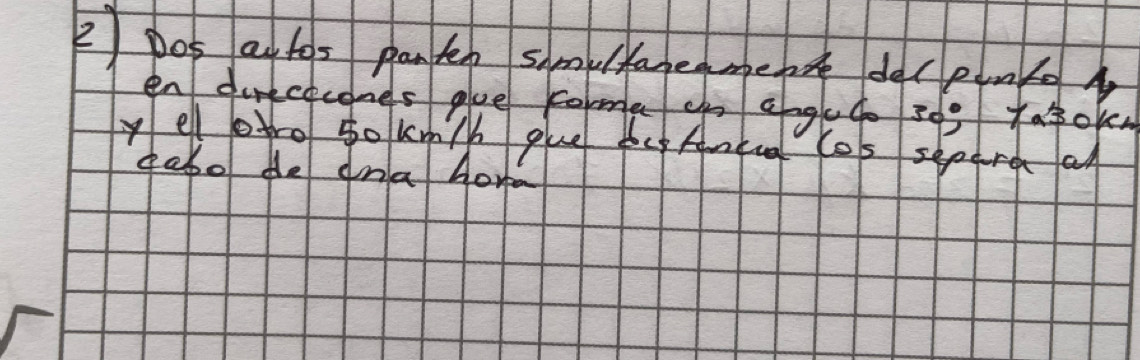 2) Dos autos parten simultaneamente del punto A
en direcciones que forma un angulo 30°, 1 a 30 km
y el otro 50 km/h que distancia los separa al
cabo de una hora